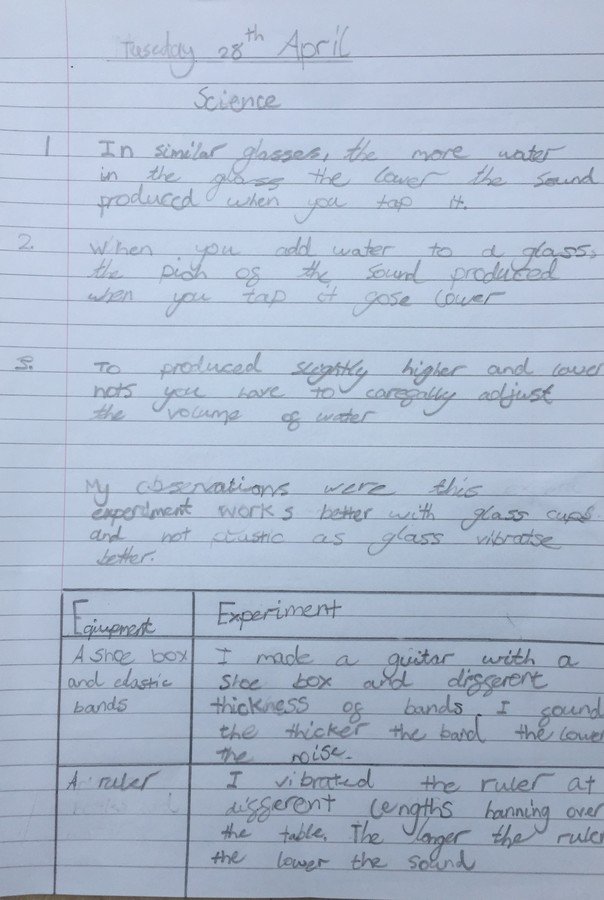 Tuesday 28th April
Science
1 In similar glasses, the more water
in the glass the lower the sound
produced when you tap it.
2. When you add water to a glass,
the pich of the sound produced
when you tap it gose lower
3. To produced slightly higher and lower
nots you have to carefally adjust
the volume of water
My observations were this
experiment works better with glass cups
and not plastic as glass vibratse
better.
Equipment Experiment
A shoe box I made a guitar with a
and elastic shoe box and different
bands thickness of bands. I found
the thicker the band the lower
the noise.
A ruler I vibrated the ruler at
different lengths hanning over
the table. The longer the ruler
the lower the sound